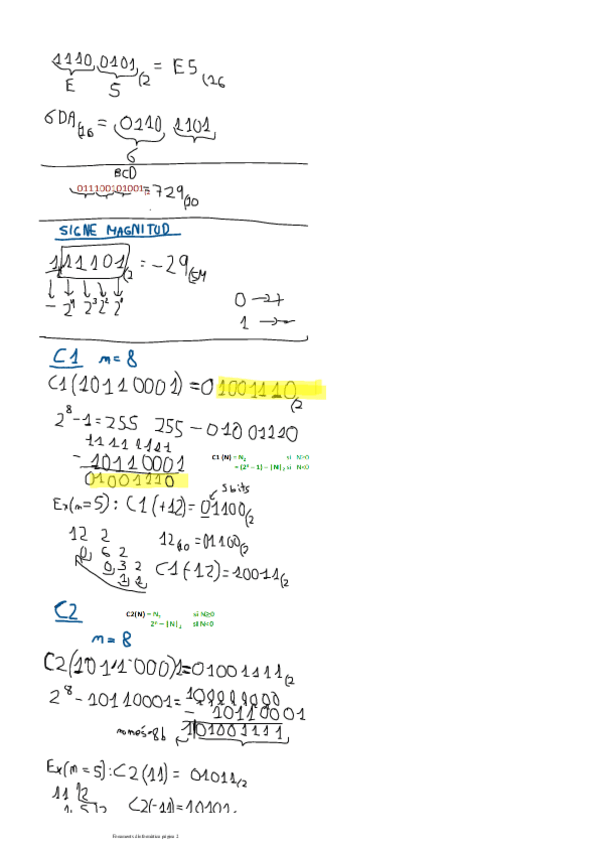 1110 0101₍₂ = E5₍₁₆
E 5
6DA₍₁₆ = 0110 1101
6
BCD
011100101001₍₂ = 729₍₁₀
SIGNE MAGNITUD
111101₍₂ = -29₍SM
- 2⁴ 2³ 2² 2⁰
0 → +
1 → -
C1 m=8
C1(10110001) = 01001110₍₂
2⁸-1=255 255 - 01001110
11111111
- 10110001
01001110
C1 (N) = N₂ si N>0
= (2ⁿ - 1) - |N|₂ si N<0
5 bits
Ex(m=5): C1(+12) = 01100₍₂
12 2 12₍₁₀ = 01100₍₂
0 6 2
0 3 2 C1(-12) = 10011₍₂
1 1
C2
C2(N) = N₂ si N≥0
2ⁿ - |N|₂ si N<0
m=8
C2(10110001) = 01001111₍₂
2⁸ - 10110001 = 100000000
- 10110001
només 8b 101001111
Ex(m=5): C2(11) = 01011₍₂
11 2
1 5 2 C2(-11) = 10101
Fonaments d'Informàtica página 2